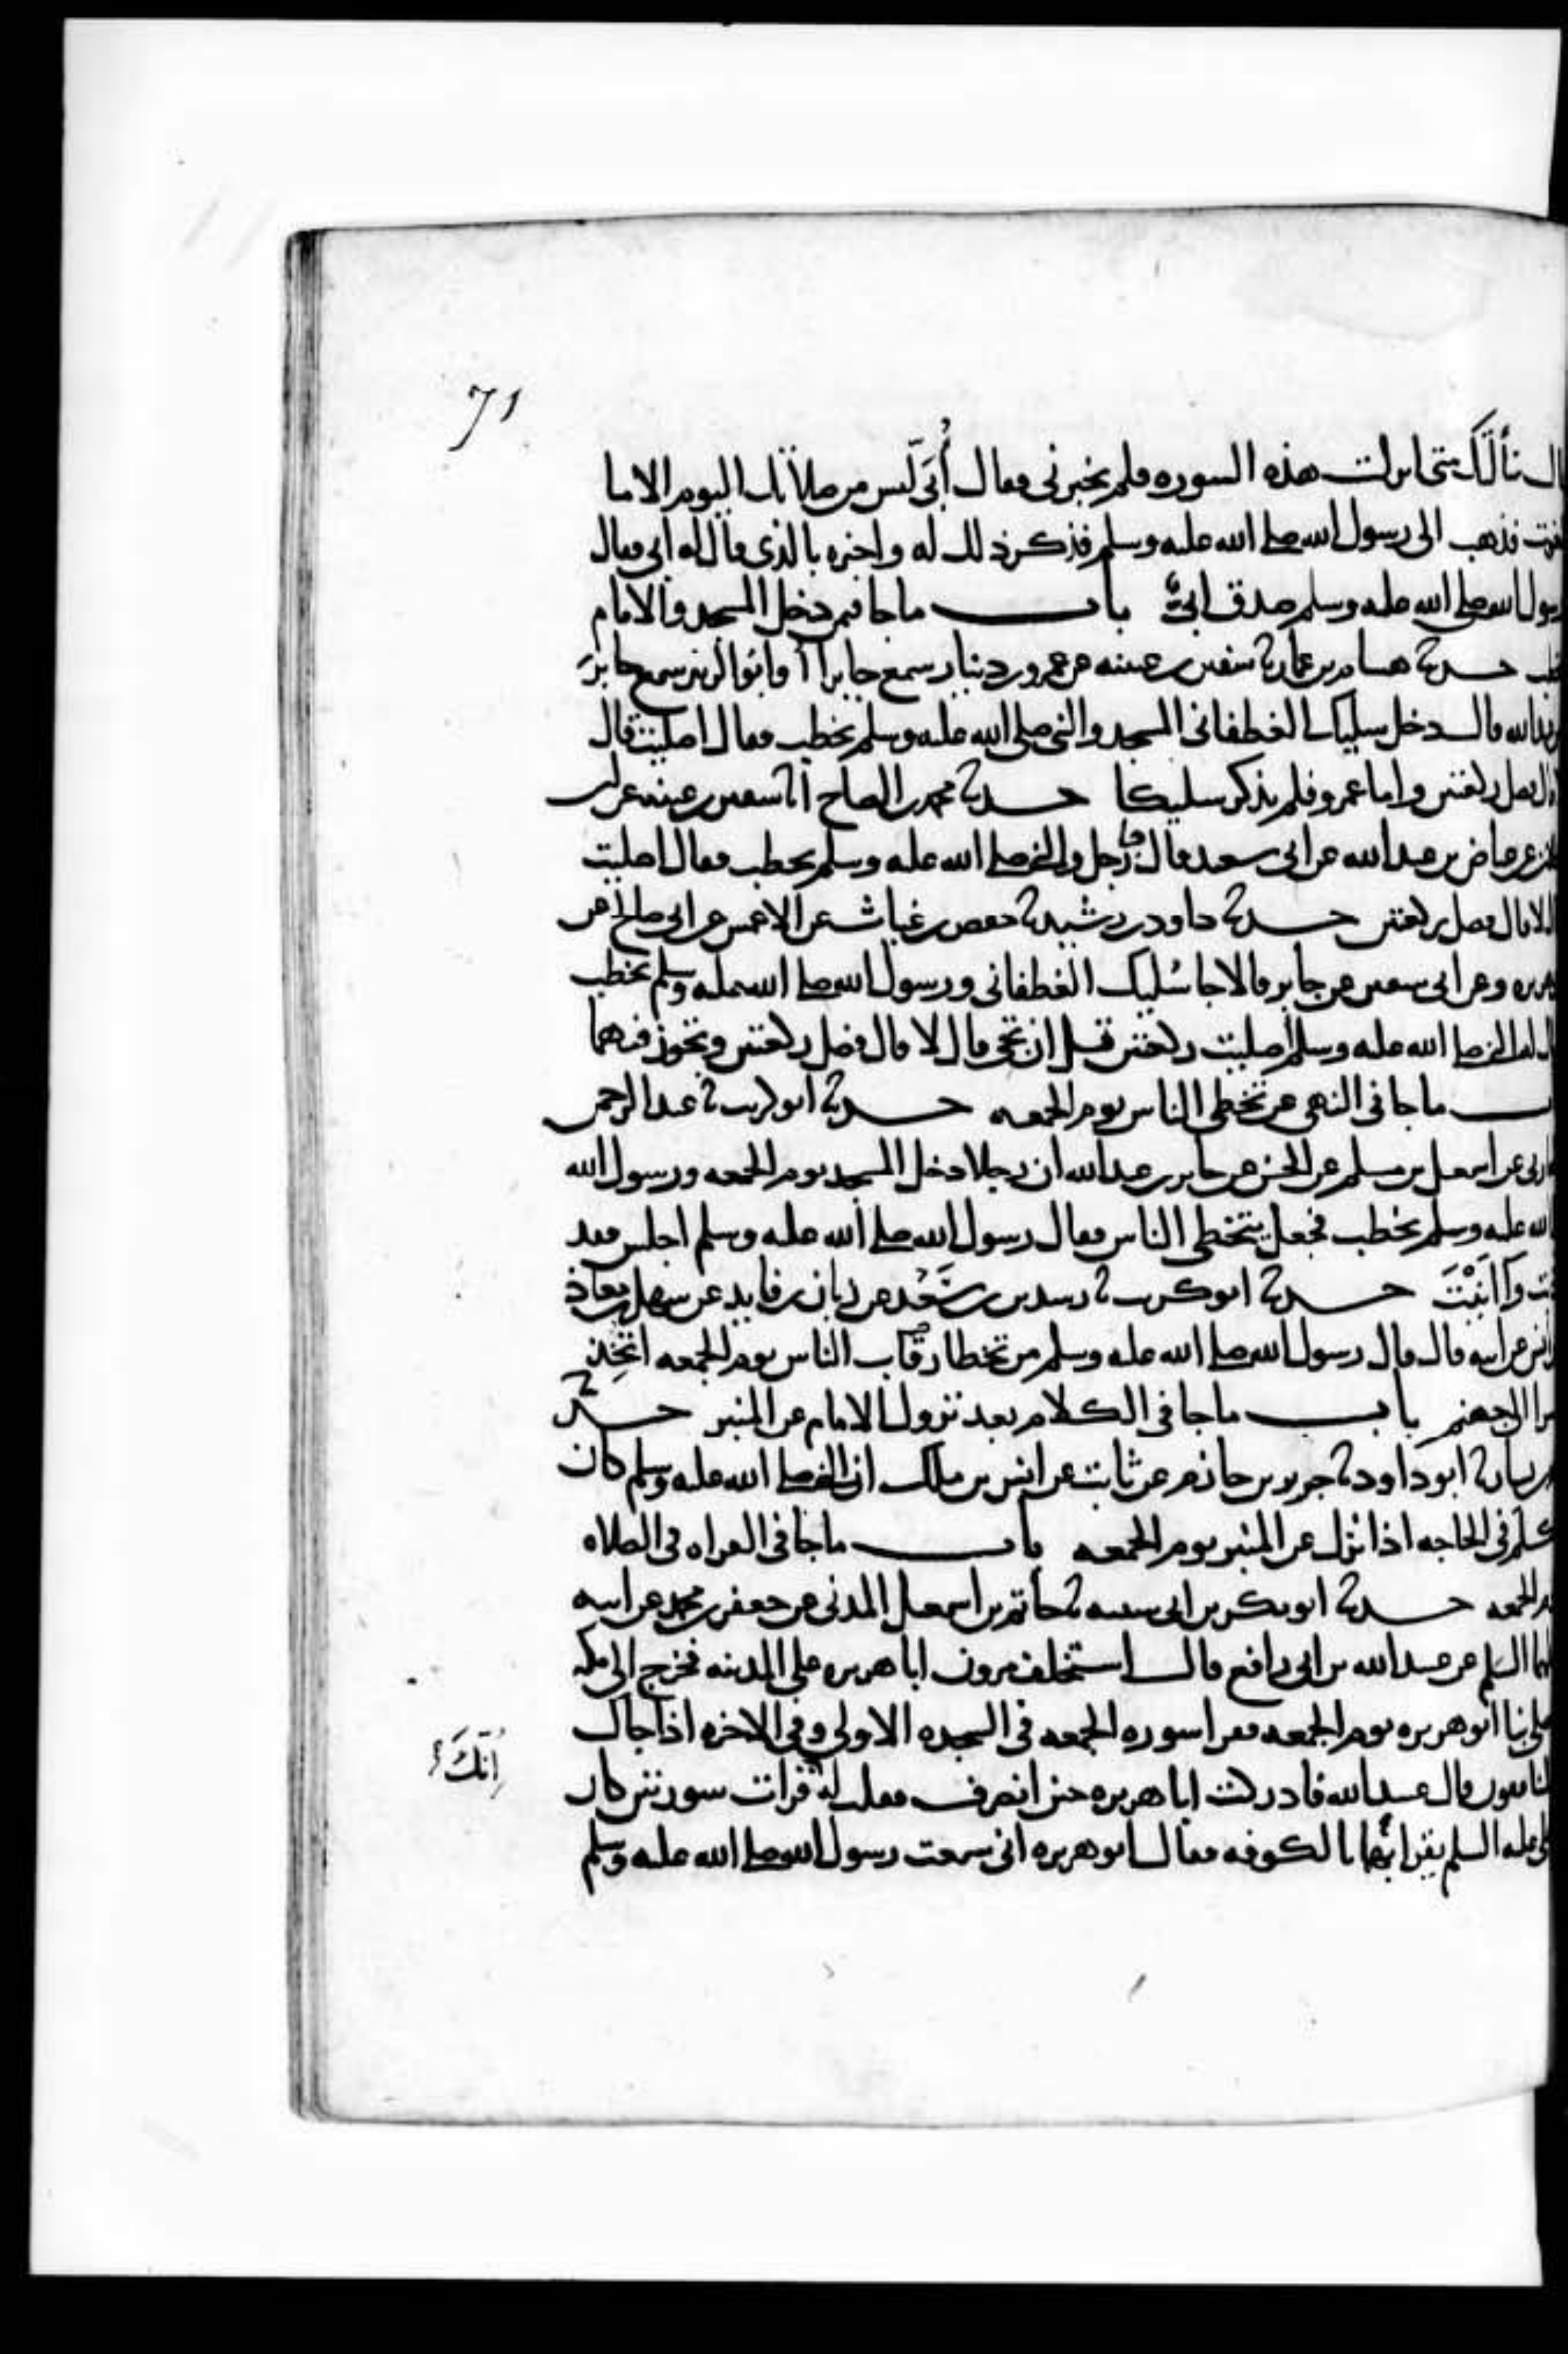 71
سألتك متى انزلت هذه السوره فلم يخبرني فقال أُبَيّ ليس من صلاتك اليوم الا ما
لغوت فذهب الى رسول الله صلى الله عليه وسلم فذكر ذلك له واخبره بالذي قال له ابي فقال
رسول الله صلى الله عليه وسلم صدق ابيّ باب ما جا فيمن دخل المسجد والامام
يخطب حدثنا هشام بن عمار ثنا سفين بن عيينه عن عمرو بن دينار سمع جابرا وابو الزبير سمع جابر
بن عبد الله قال دخل سليك الغطفاني المسجد والنبي صلى الله عليه وسلم يخطب فقال اصليت قال
فصل ركعتين واما عمرو فلم يذكر سليكا حدثنا محمد بن الصباح انا سفين بن عيينه عن ابن
عجلان عن عياض بن عبد الله عن ابي سعيد قال جا رجل والنبي صلى الله عليه وسلم يخطب فقال اصليت
قال لا قال فصل ركعتين حدثنا داود بن رشيد ثنا حفص بن غياث عن الاعمش عن ابي صالح عن
ابي هريره وعن ابي سفين عن جابر قالا جا سُليك الغطفاني ورسول الله صلى الله عليه وسلم يخطب
فقال له النبي صلى الله عليه وسلم اصليت ركعتين قبل ان تجي قال لا قال فصل ركعتين وتجوز فيهما
باب ما جا في النهي عن تخطي الناس يوم الجمعه حدثنا ابو كريب ثنا عبد الرحمن
المحاربي عن اسمعيل بن مسلم عن الحسن عن جابر بن عبد الله ان رجلا دخل المسجد يوم الجمعه ورسول الله
صلى الله عليه وسلم يخطب فجعل يتخطى الناس فقال رسول الله صلى الله عليه وسلم اجلس فقد
اذيت وانيت حدثنا ابو كريب ثنا رشدين بن سَعْد عن زبان بن فايد عن سهل بن معاذ
بن انس عن ابيه قال قال رسول الله صلى الله عليه وسلم من تخطا رقاب الناس يوم الجمعه اتُّخِذ
جسرا الى جهنم باب ما جا في الكلام بعد نزول الامام عن المنبر حدثنا
محمد بن بشار ثنا ابو داود ثنا جرير بن حازم عن ثابت عن انس بن ملك ان النبي صلى الله عليه وسلم كان
يكلم في الحاجه اذا نزل عن المنبر يوم الجمعه باب ما جا في القراه في الصلاه
يوم الجمعه حدثنا ابو بكر بن ابي شيبه ثنا حاتم بن اسمعيل المدني عن جعفر بن محمد عن ابيه
عليهما السلم عن عبيد الله بن ابي رافع قال استخلف مرون ابا هريره على المدينه فخرج الى مكه
فصلى بنا ابو هريره يوم الجمعه فقرا سوره الجمعه في السجده الاولى وفي الاخره اذا جاك
المنافقون قال عبيد الله فادركت ابا هريره حين انصرف فقلت له قرات سورتين كان
اِنَّكَ
علي عليه السلم يقرا بهما بالكوفه فقال ابو هريره اني سمعت رسول الله صلى الله عليه وسلم